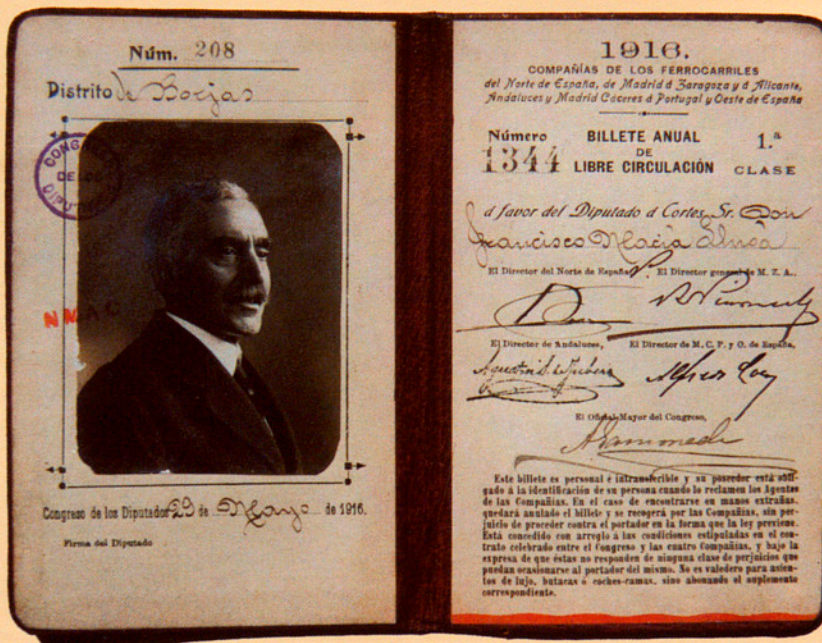 Núm. 208
Distrito de Borjas
CONGRESO
DE LOS
DIPUTADOS
Congreso de los Diputados 29 de Mayo de 1916.
Firma del Diputado
1916.
COMPAÑIAS DE LOS FERROCARRILES
del Norte de España, de Madrid á Zaragoza y á Alicante,
Andaluces y Madrid Cáceres á Portugal y Oeste de España
Número BILLETE ANUAL 1.ª
1344 DE
LIBRE CIRCULACIÓN CLASE
á favor del Diputado á Cortes, Sr. Don
Francisco Macía Llusá
El Director del Norte de España, El Director general de M. Z. A.,
El Director de Andaluces, El Director de M. C. P. y O. de España,
El Oficial Mayor del Congreso,
Este billete es personal é intransferible y su poseedor está obli-
gado á la identificación de su persona cuando lo reclamen los Agentes
de las Compañías. En el caso de encontrarse en manos extrañas,
quedará anulado el billete y se recogerá por las Compañías, sin per-
juicio de proceder contra el portador en la forma que la ley previene.
Está concedido con arreglo á las condiciones estipuladas en el con-
trato celebrado entre el Congreso y las cuatro Compañías, y bajo la
expresa de que éstas no responden de ninguna clase de perjuicios que
puedan ocasionarse al portador del mismo. No es valedero para asien-
tos de lujo, butacas ó coches-camas, sino abonando el suplemento
correspondiente.